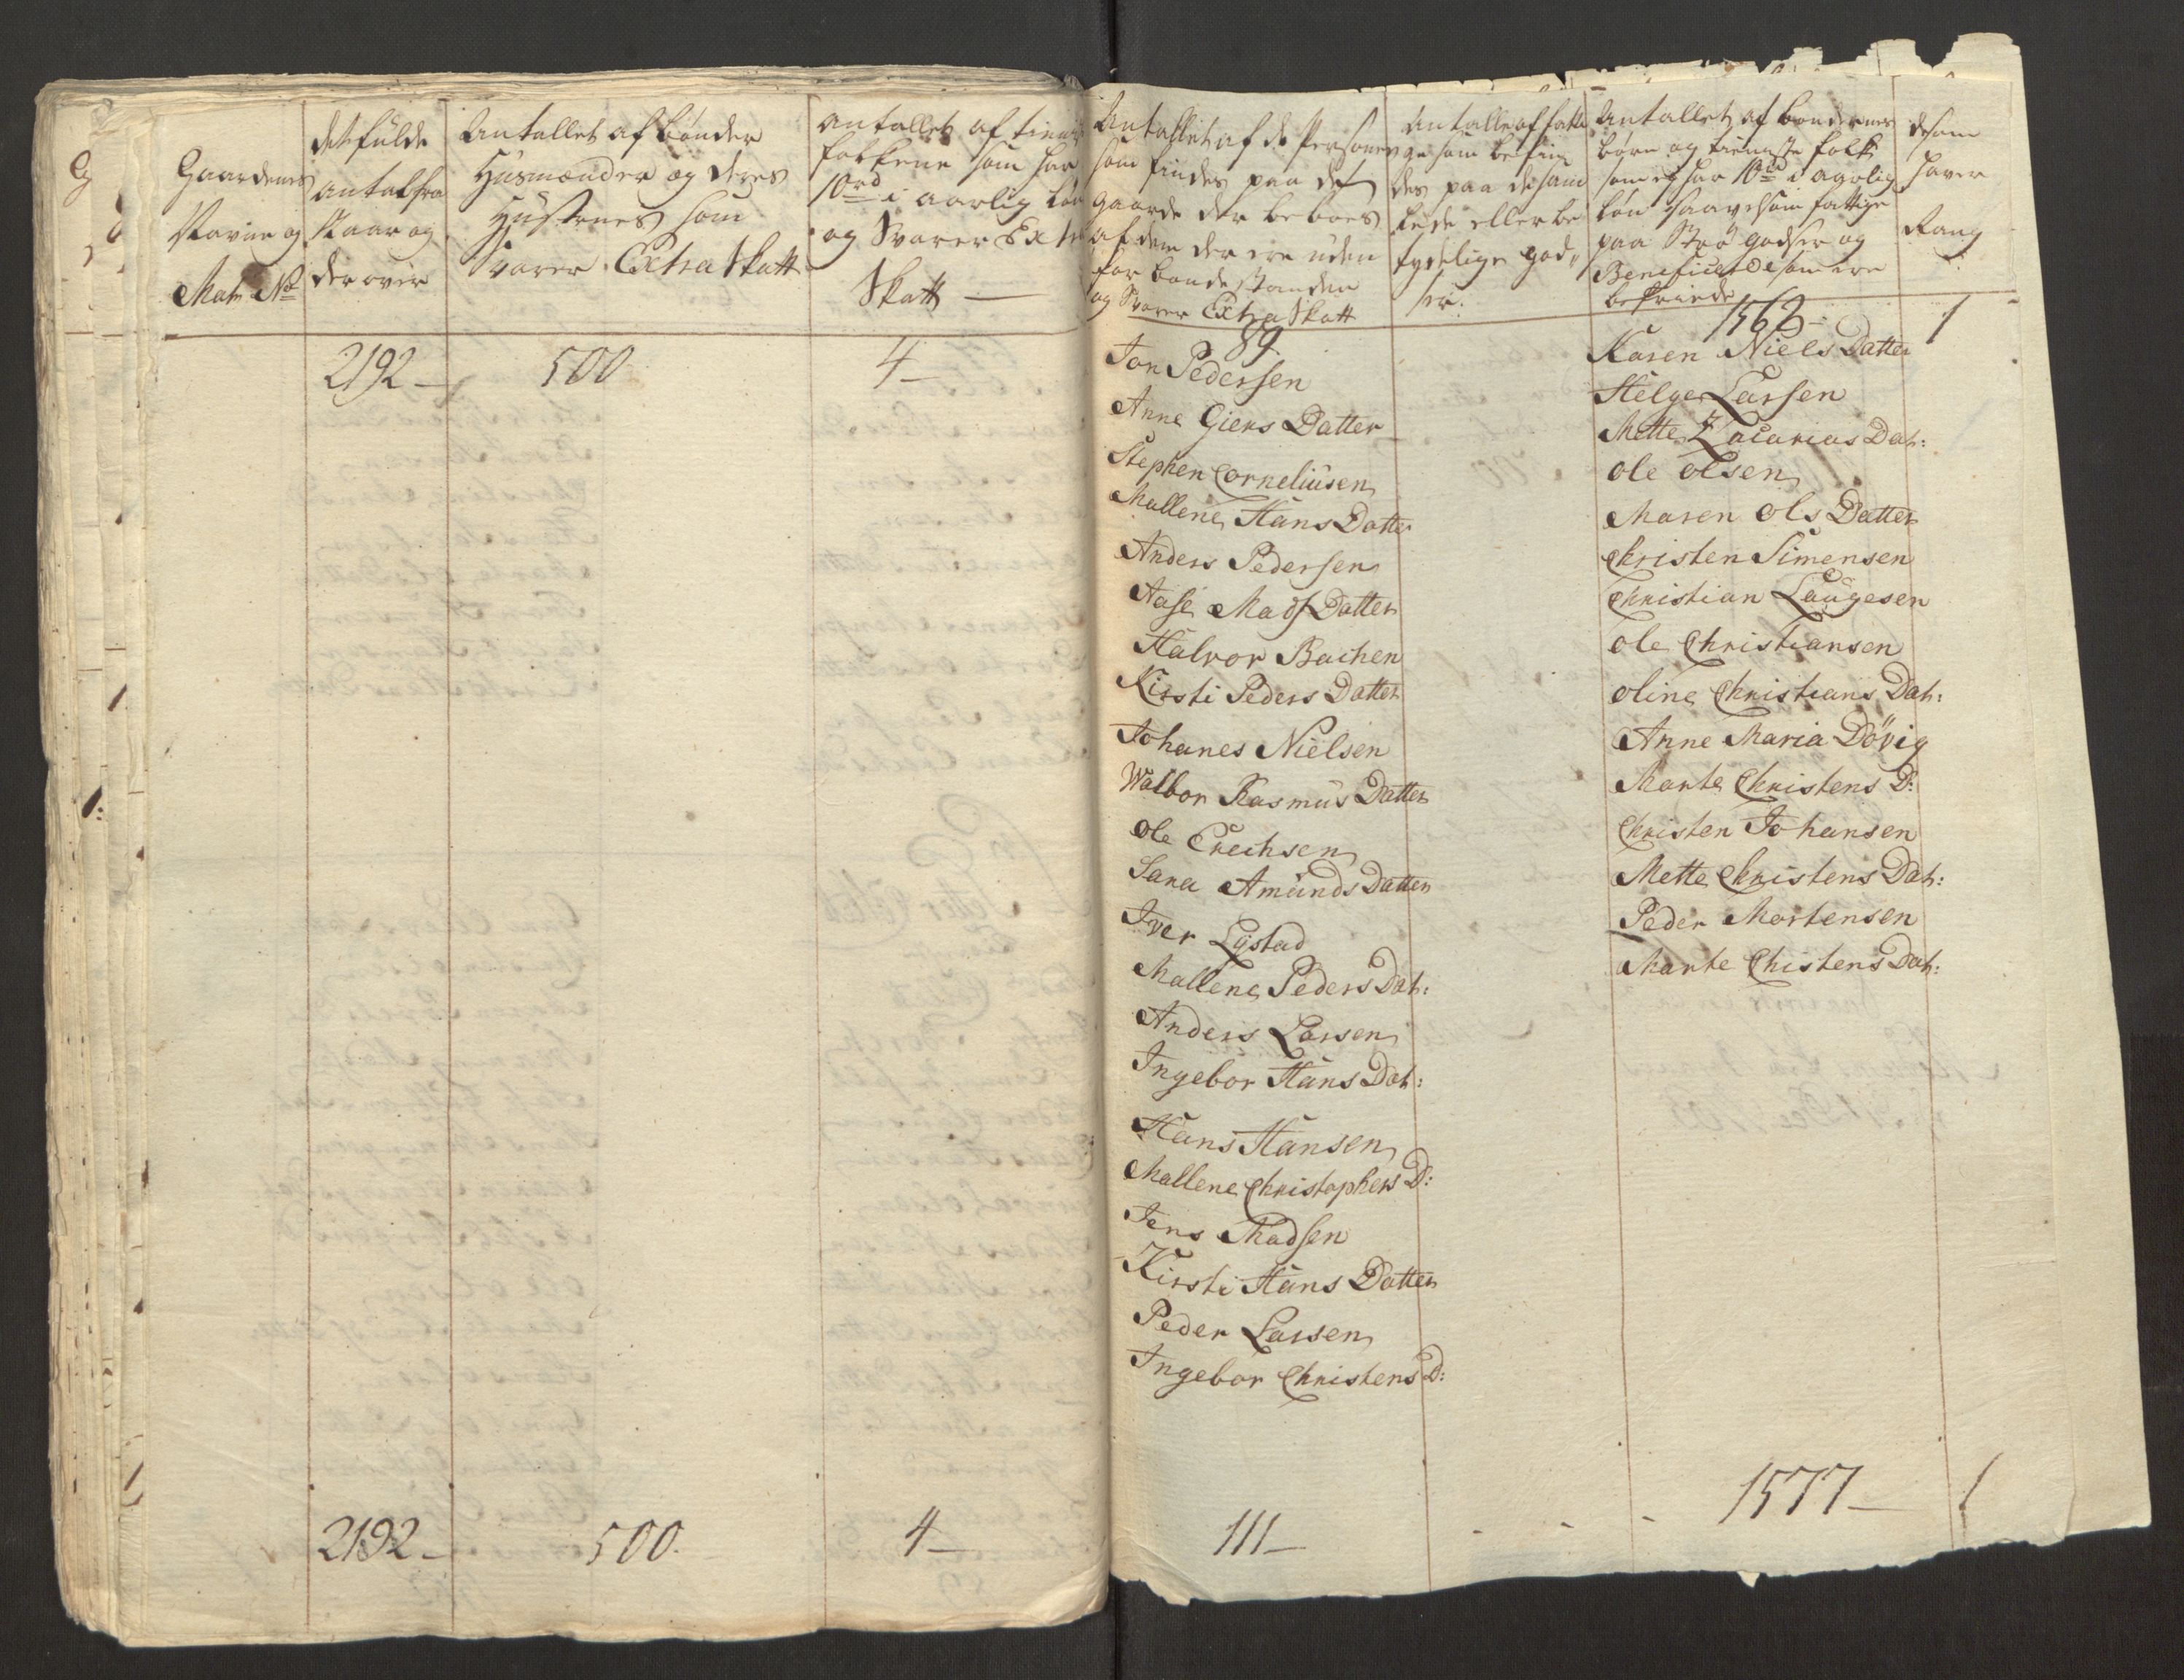 Gaardenes
Navne og
Matr No
det fulde
antal fra
12 aar og
derover
Antallet af bønder
Husmænder og deres
Hustrues som
Svarer Extra Skatt
Antallet af
folkene som har
10rd i aarlig løn
og Svarer Extra
Skatt —
2192 —
500
4 —
2192 —
500.
4 —
Antallet af de Personer
som findes paa de
Gaarde der beboes
af dem der ere uden
for bondestanden
og Svarer Extra Skatt
89
Jon Pedersen
Anne Giers Datter
Stephen Corneliusen
Mallene Hans Datter
Anders Pedersen
Aase Mads Datter
Halvor Bachen
Kirsti Peders Datter
Johanes Nielsen
Walbor Rasmus Datter
Ole Erechsen
Sara Amunds Datter
Iver Lystad
Mallene Peders Dat:
Anders Larsen
Ingebor Hans Dat:
Hans Hansen
Mallene Christophers D:
Jens Madsen
Kirsti Hans Datter
Peder Larsen
Ingebor Christens D:
111 —
Antallet af
som befin
des paa
eller be
tydelige god
ser.
Antallet af bøndernes
børn og tieneste folk
som ej har 10rd i aarlig
løn saavelsom fattige
paa Strøgodser og
Beneficerede som ere
befriede
1562 —
Karen Niels Datter
Helge Larsen
Mette Zacarias Dat:
Ole Olsen
Maren Ols Datter
Christen Simensen
Christian Laugesen
Ole Christiansen
Oline Christians Dat:
Anne Maria Dövig
Marte Christens D:
Christen Johansen
Mette Christens Dat:
Peder Mortensen
Marte Chistens Dat:
1577 —
de som
haver
Rang
1
1